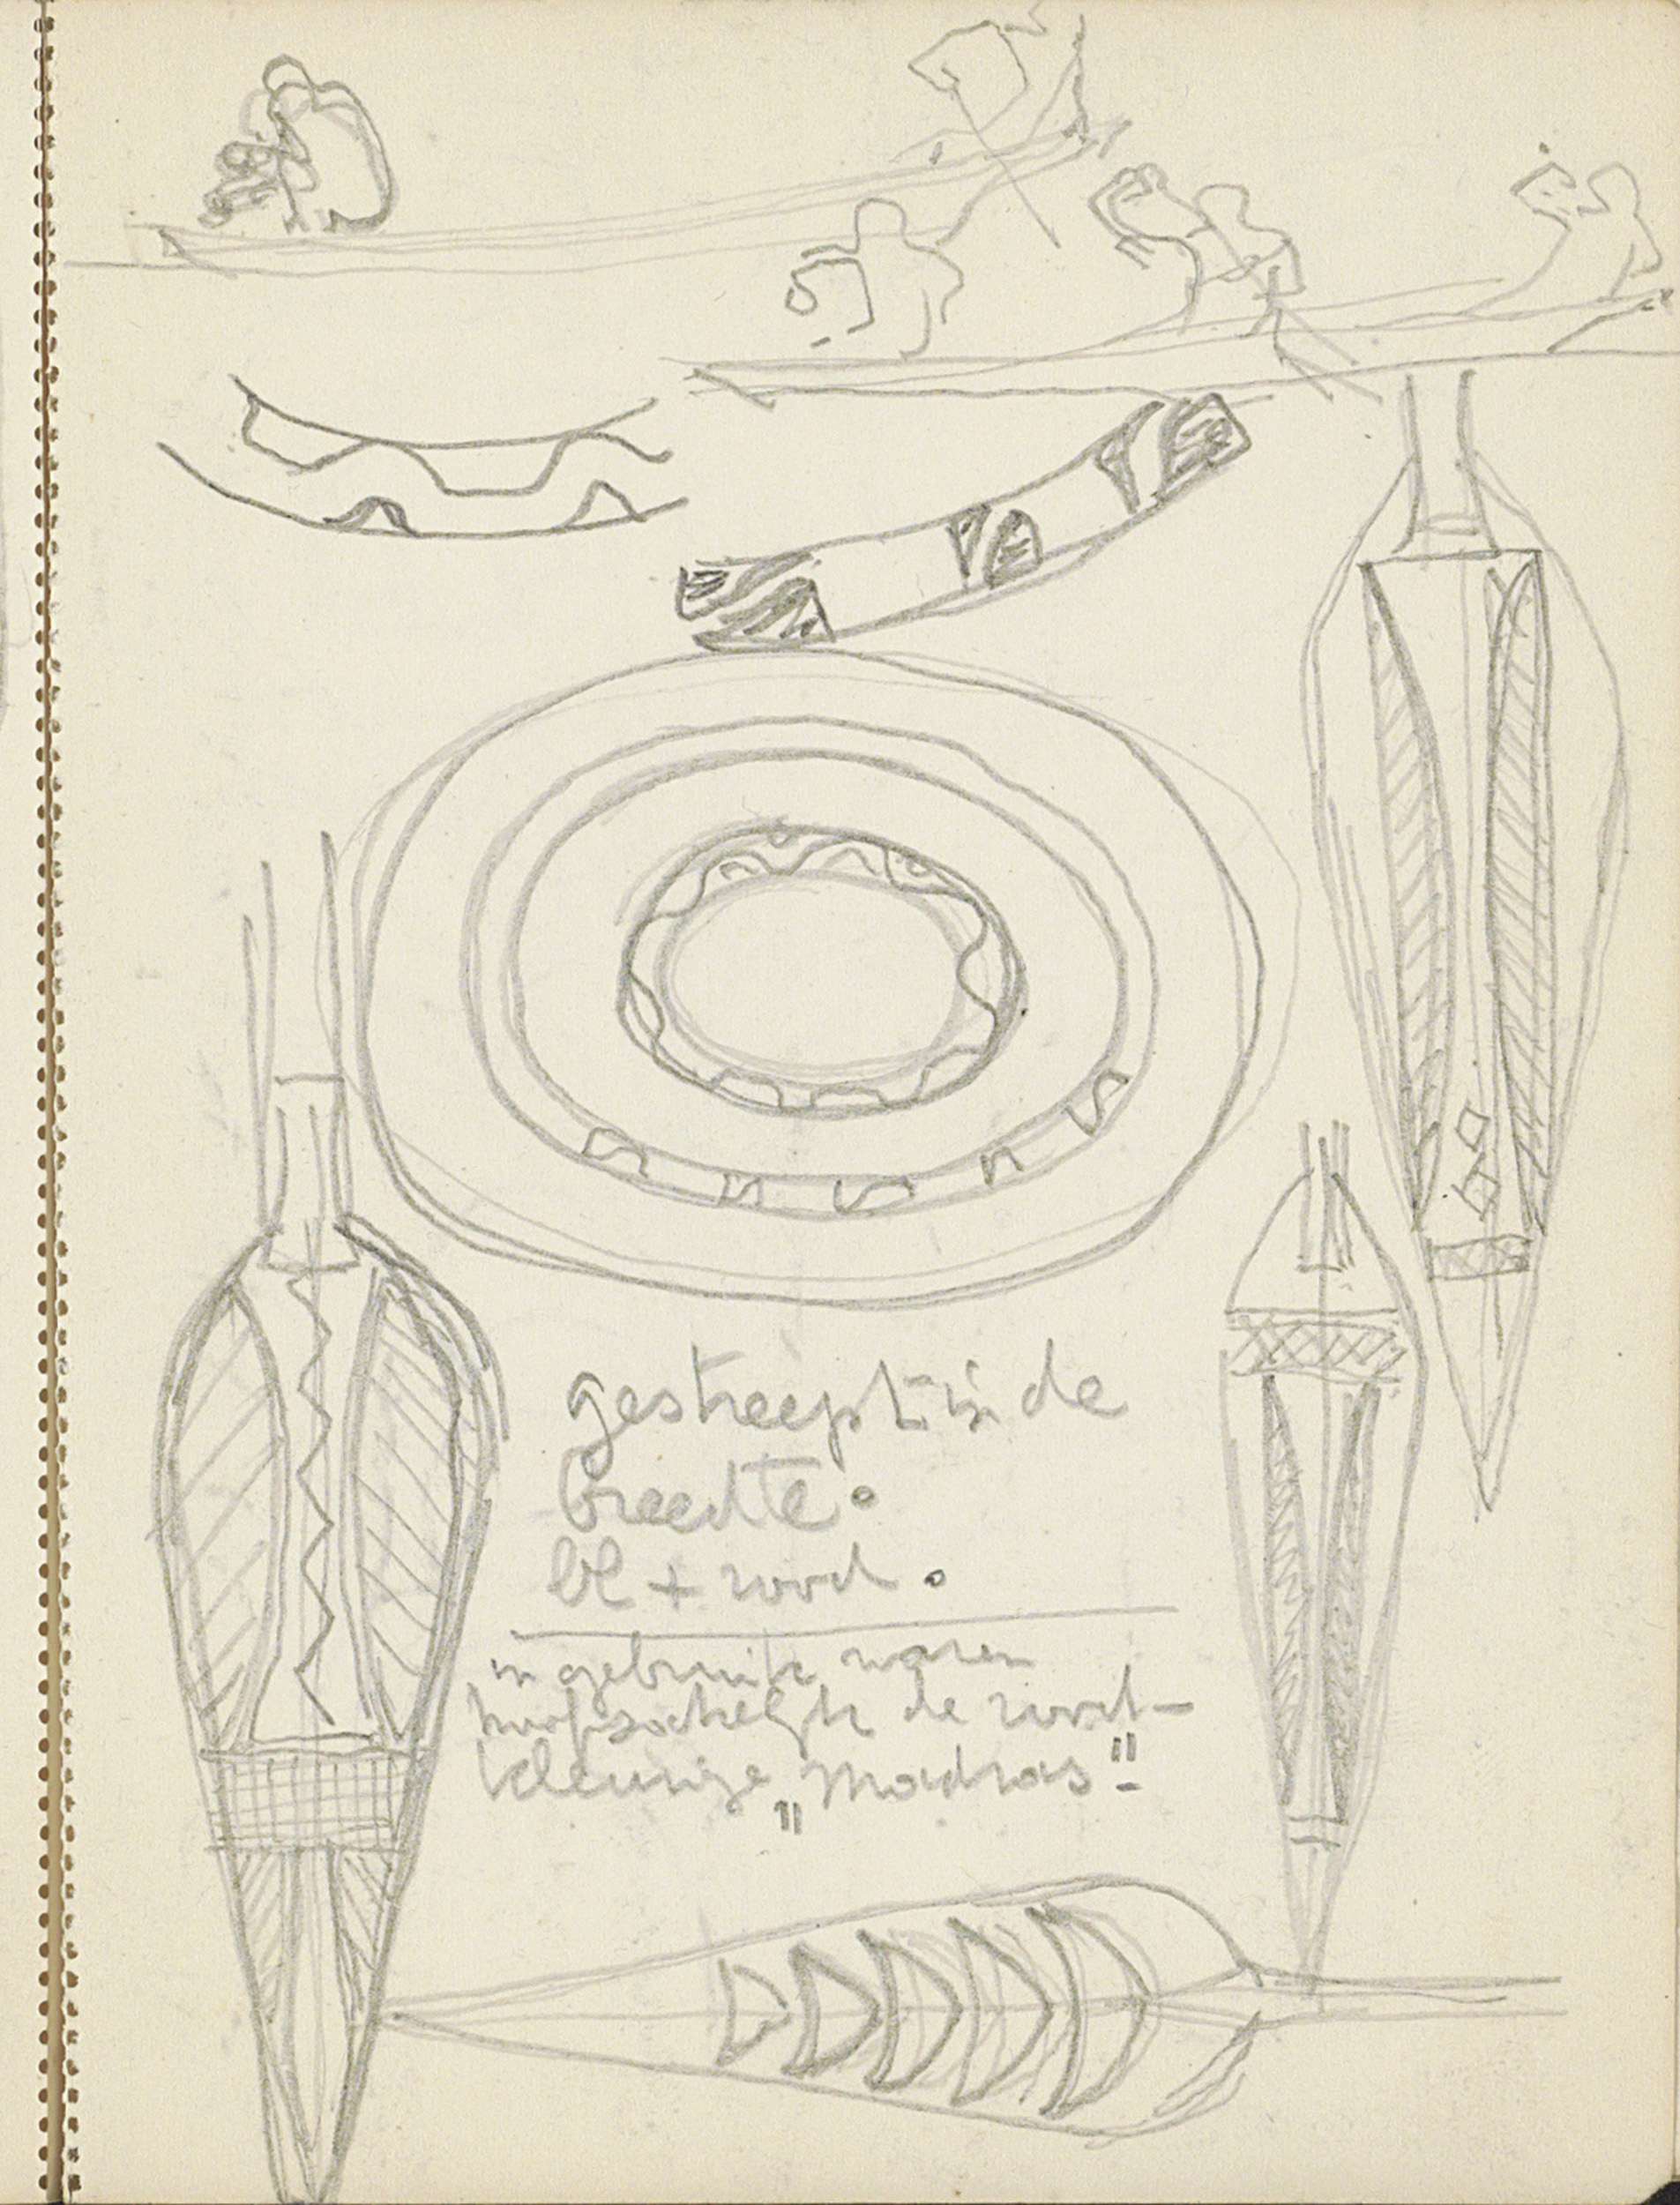 gestreept in de
breedte.
bl + rood.
in gebruik waren
hoofdzakelijk de rood-
kleurige „Madras"-